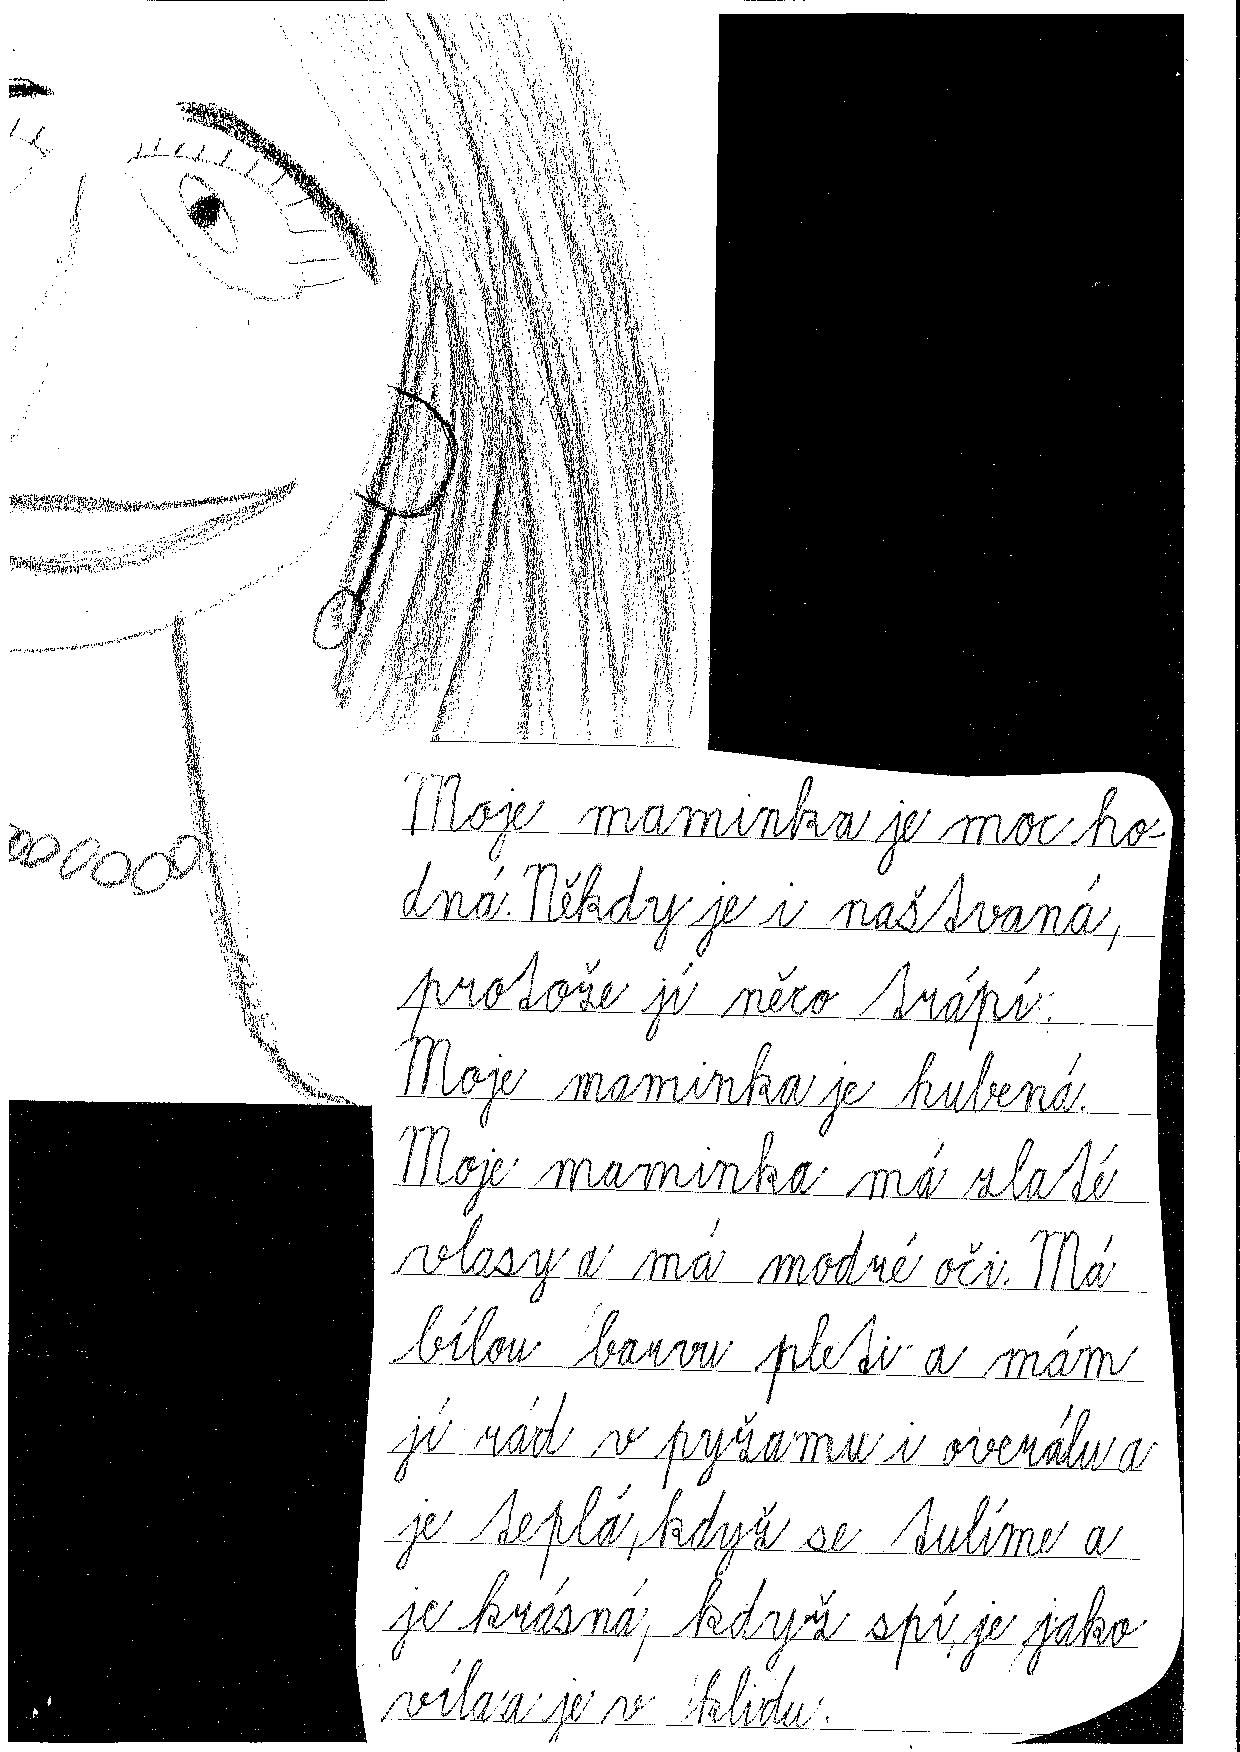 Moje maminka je moc ho-
dná. Někdy je i naštvaná,
protože jí něco trápí.
Moje maminka je hubená.
Moje maminka má zlaté
vlasy a má modré oči. Má
bílou barvu pleti a mám
jí rád v pyžamu i overálu a
je teplá, když se tulíme a
je krásná, když spí, je jako
víla a je v klidu.